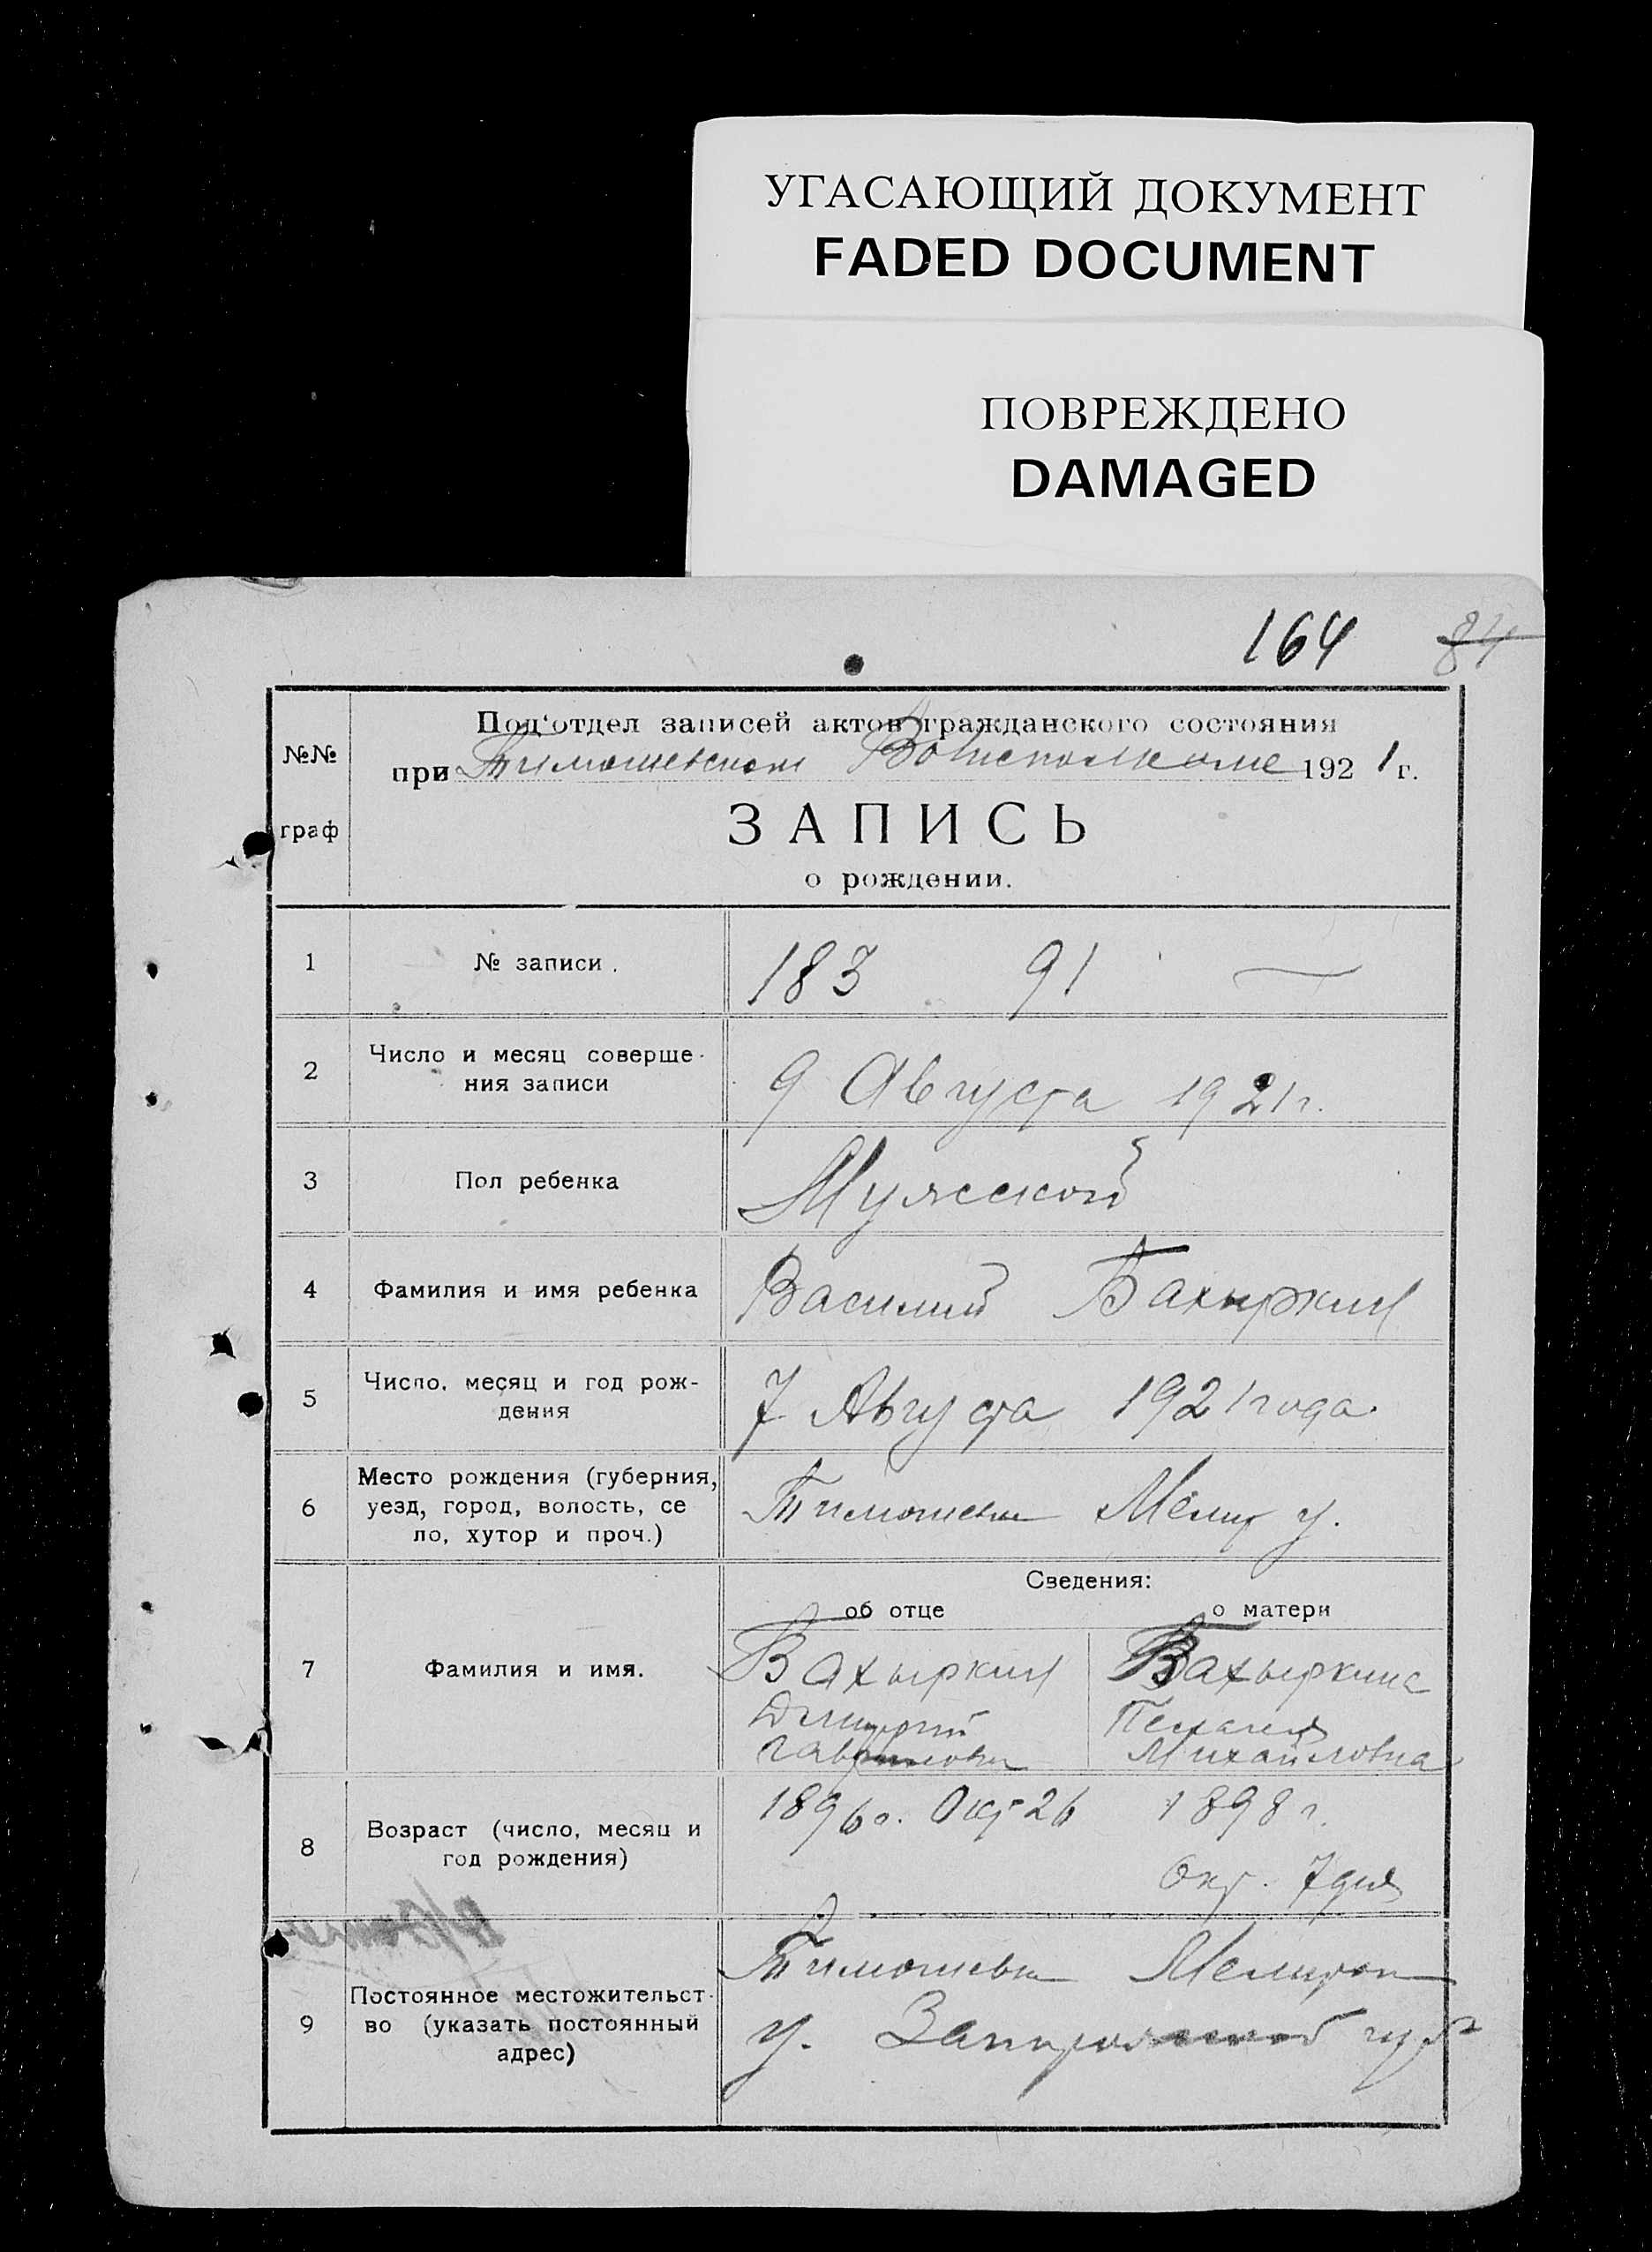 УГАСАЮЩИЙ ДОКУМЕНТ
FADED DOCUMENT
ПОВРЕЖДЕНО
DAMAGED
164 84
№№
граф
Под‘отдел записей актов гражданского состояния
при Тимошевском Волисполкоме 1921 г.
ЗАПИСЬ
о рождении.
1 № записи. 183 91 —
2 Число и месяц соверше-
ния записи
9 Августа 1921 г.
3 Пол ребенка Мужской
4 Фамилия и имя ребенка Василий Бахыркин
5 Число, месяц и год рож-
дения
7 Августа 1921 года.
6 Место рождения (губерния,
уезд, город, волость, се
ло, хутор и проч.)
Тимошевка Мелит у.
Сведения:
об отце о матери
7 Фамилия и имя.
Бахыркин
Дмитрий
Гаврилович
Бахыркина
Пелагея
Михайловна
8 Возраст (число, месяц и
год рождения)
1896 г. Окт 26
1898 г.
Окт. 7 дня
9 Постоянное местожительст-
во (указать постоянный
адрес)
Тимошевка Мелитоп
у. Запорожской губ